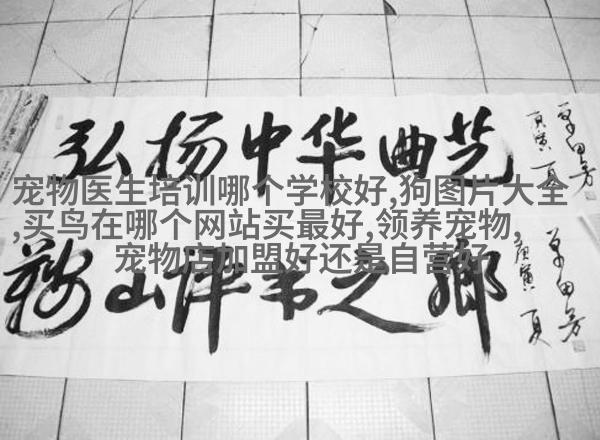 弘扬中华曲艺
庚寅 夏
单田芳
宠物医生培训哪个学校好,狗图片大全
,买鸟在哪个网站买最好,领养宠物,
宠物店加盟好还是自营好
鞍山评书之乡
庚寅 夏
单田芳